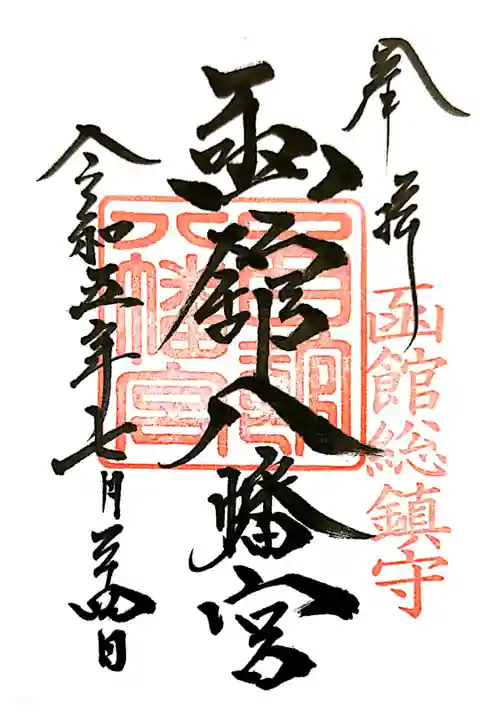 奉拝
函館総鎮守
函館八幡宮
令和五年七月二十四日